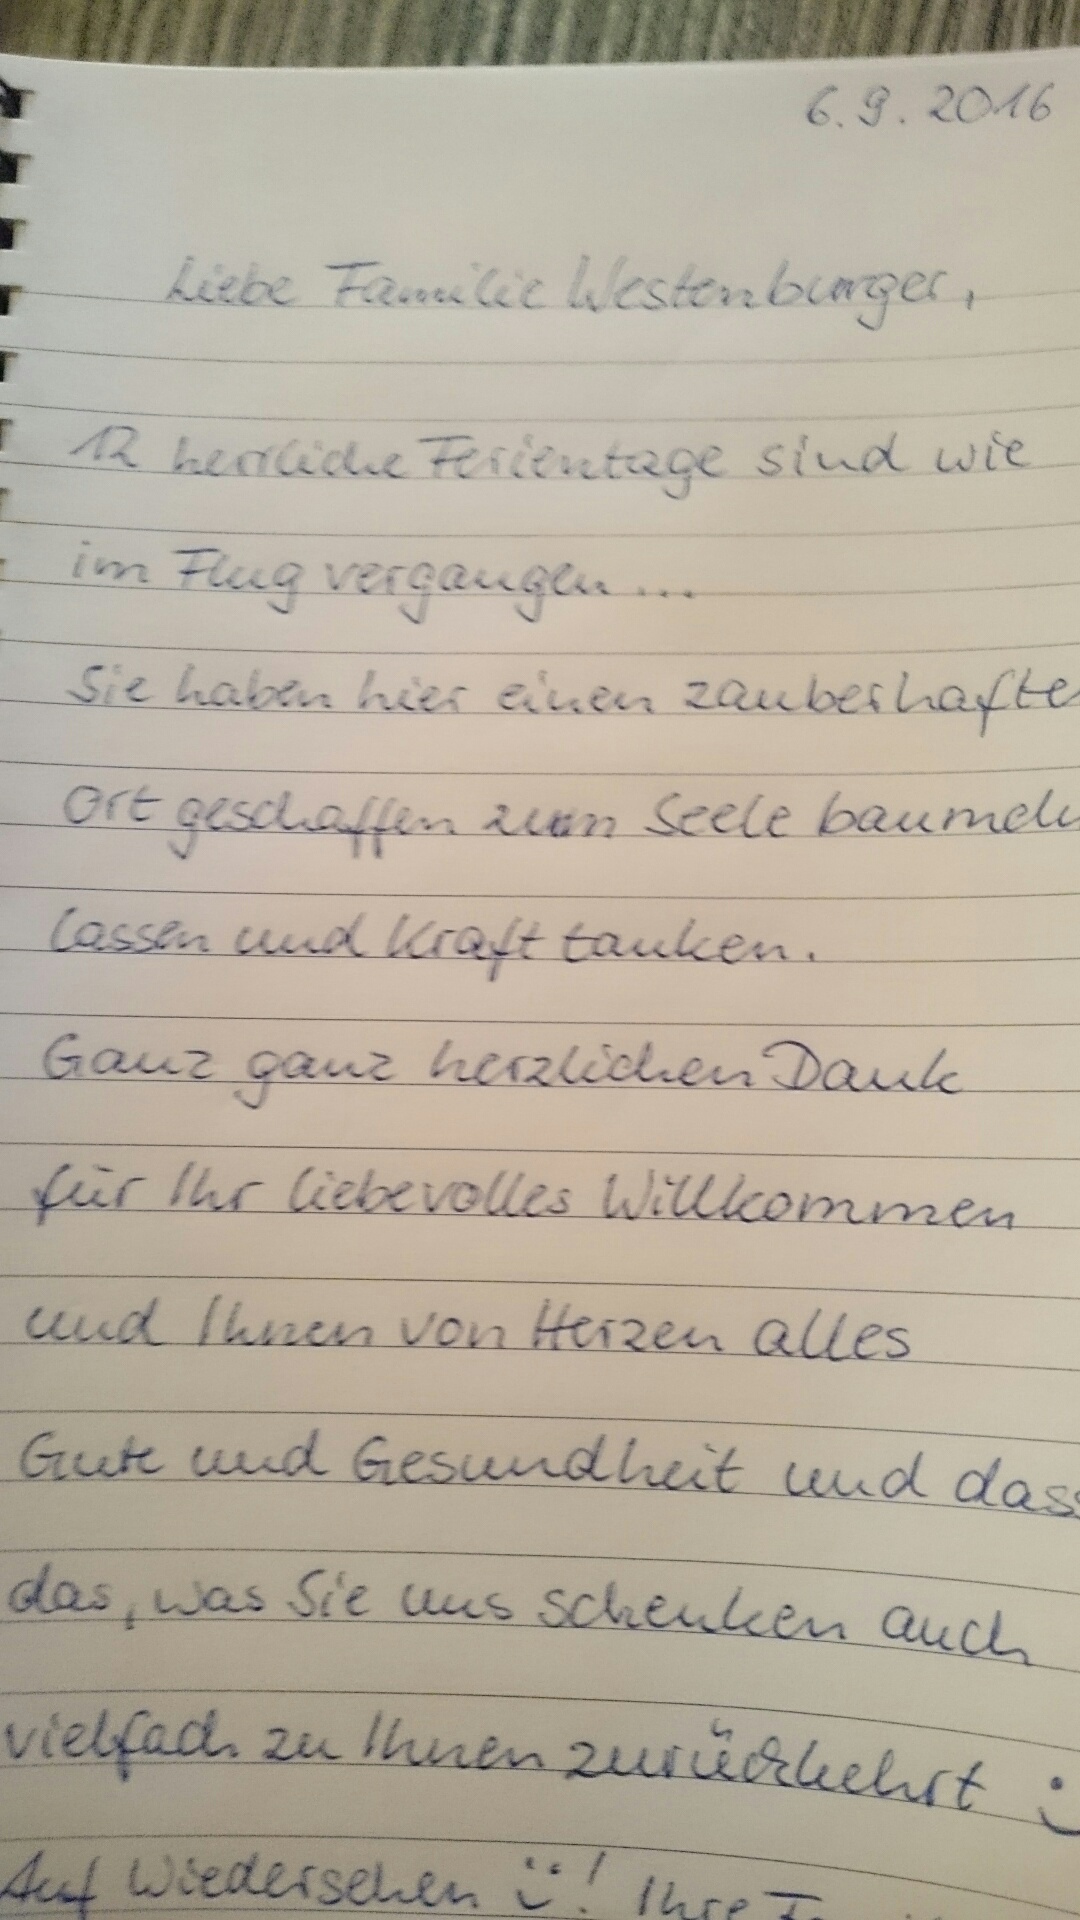 6.9.2016
Liebe Familie Westenburger,
12 herrliche Ferientage sind wie
im Flug vergangen...
Sie haben hier einen zauberhaften
Ort geschaffen zum Seele baumeln
lassen und Kraft tanken.
Ganz ganz herzlichen Dank
für Ihr liebevolles Willkommen
und Ihnen von Herzen alles
Gute und Gesundheit und dass
das, was Sie uns schenken auch
vielfach zu Ihnen zurückkehrt :)
Auf Wiedersehen :)! Ihre